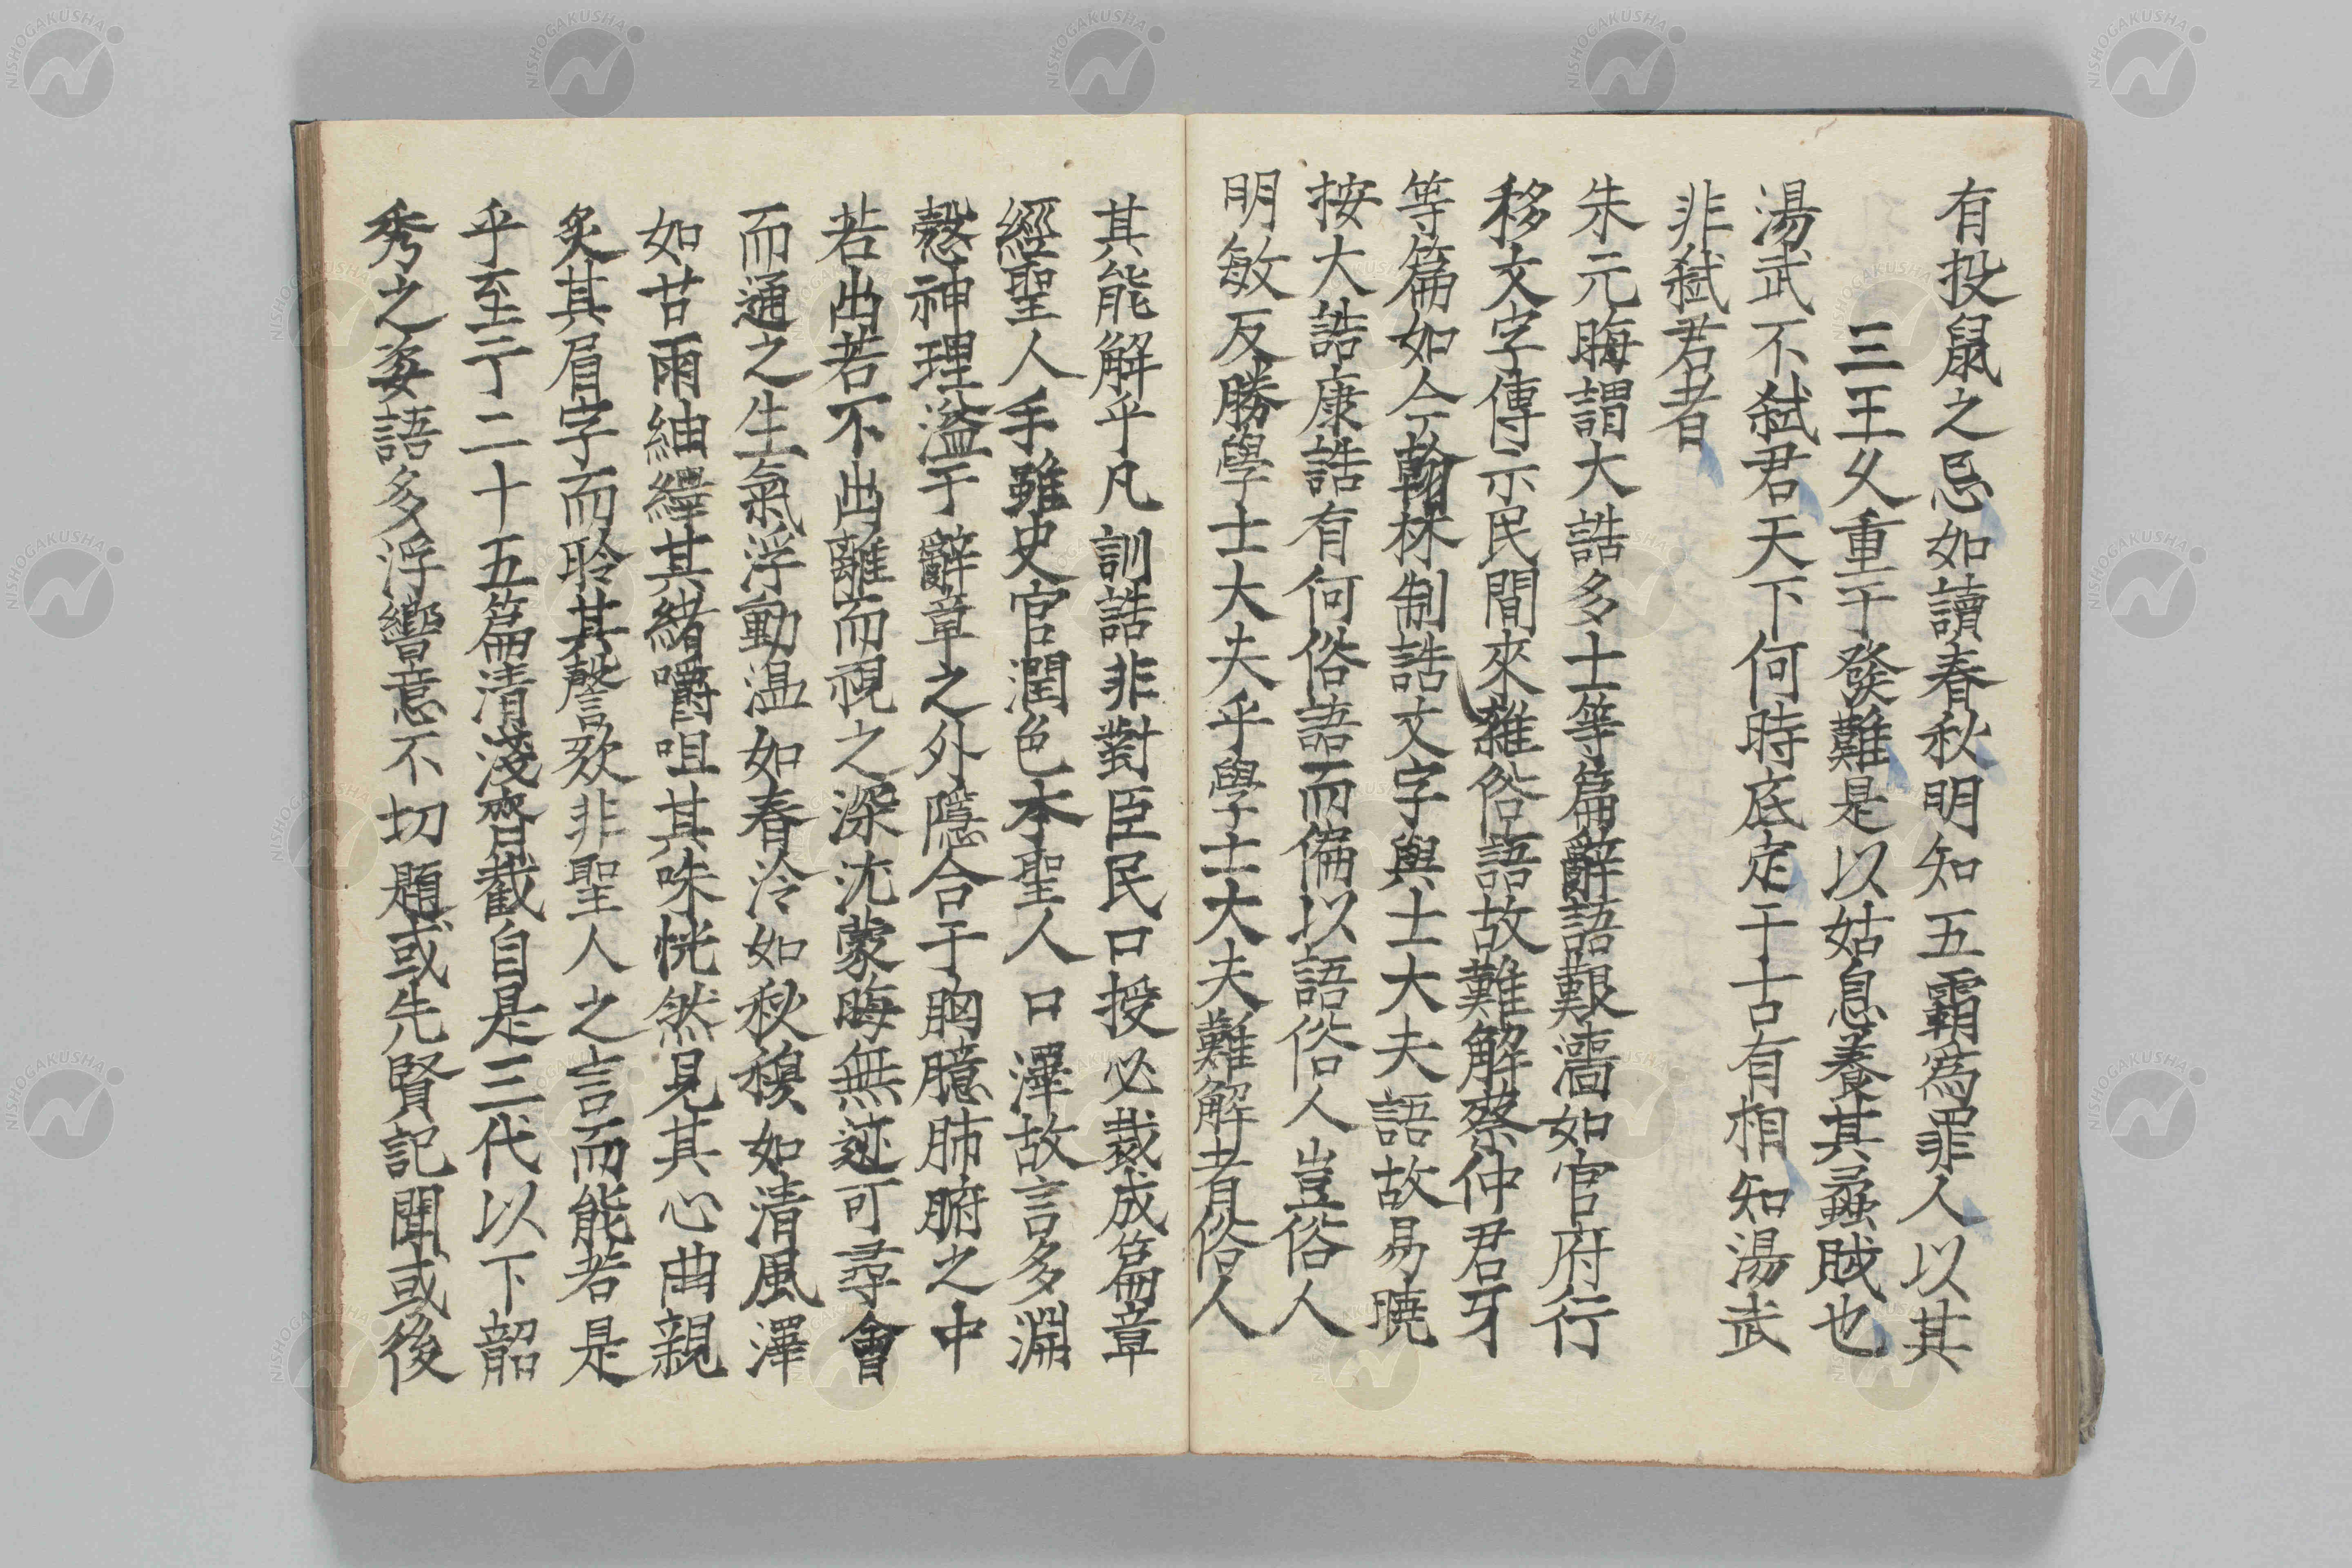 有投鼠之忌如讀春秋明知五霸為罪人以其
三王乂重于發難是以姑息養其蟊賊也
湯武不弑君天下何時底定千古有相知湯武
非弑君者
朱元晦謂大誥多士等篇辭語艱澀如官府行
移文字傳示民間來雜俗語故難解蔡仲君牙
等篇如今翰林制誥文字與士大夫語故易曉
按大誥康誥有何俗語而偏以語俗人豈俗人
明敏反勝學士大夫乎學士大夫難解者俗人
其能解乎凡訓誥非對臣民口授必裁成篇章
經聖人手雖史官潤色本聖人口澤故言多淵
愨神理溢于辭章之外隱合于胸臆肺腑之中
若出若不出離而視之深沈蒙晦無迹可尋會
而通之生氣浮動温如春泠如秋穆如清風澤
如甘雨紬繹其緒嚼咀其味恍然見其心曲親
炙其眉宇而聆其謦欬非聖人之言而能若是
乎至于二十五篇清淺齊截自是三代以下韶
秀之姿語多浮響意不切題或先賢記聞或後
NISHOGAKUSHA